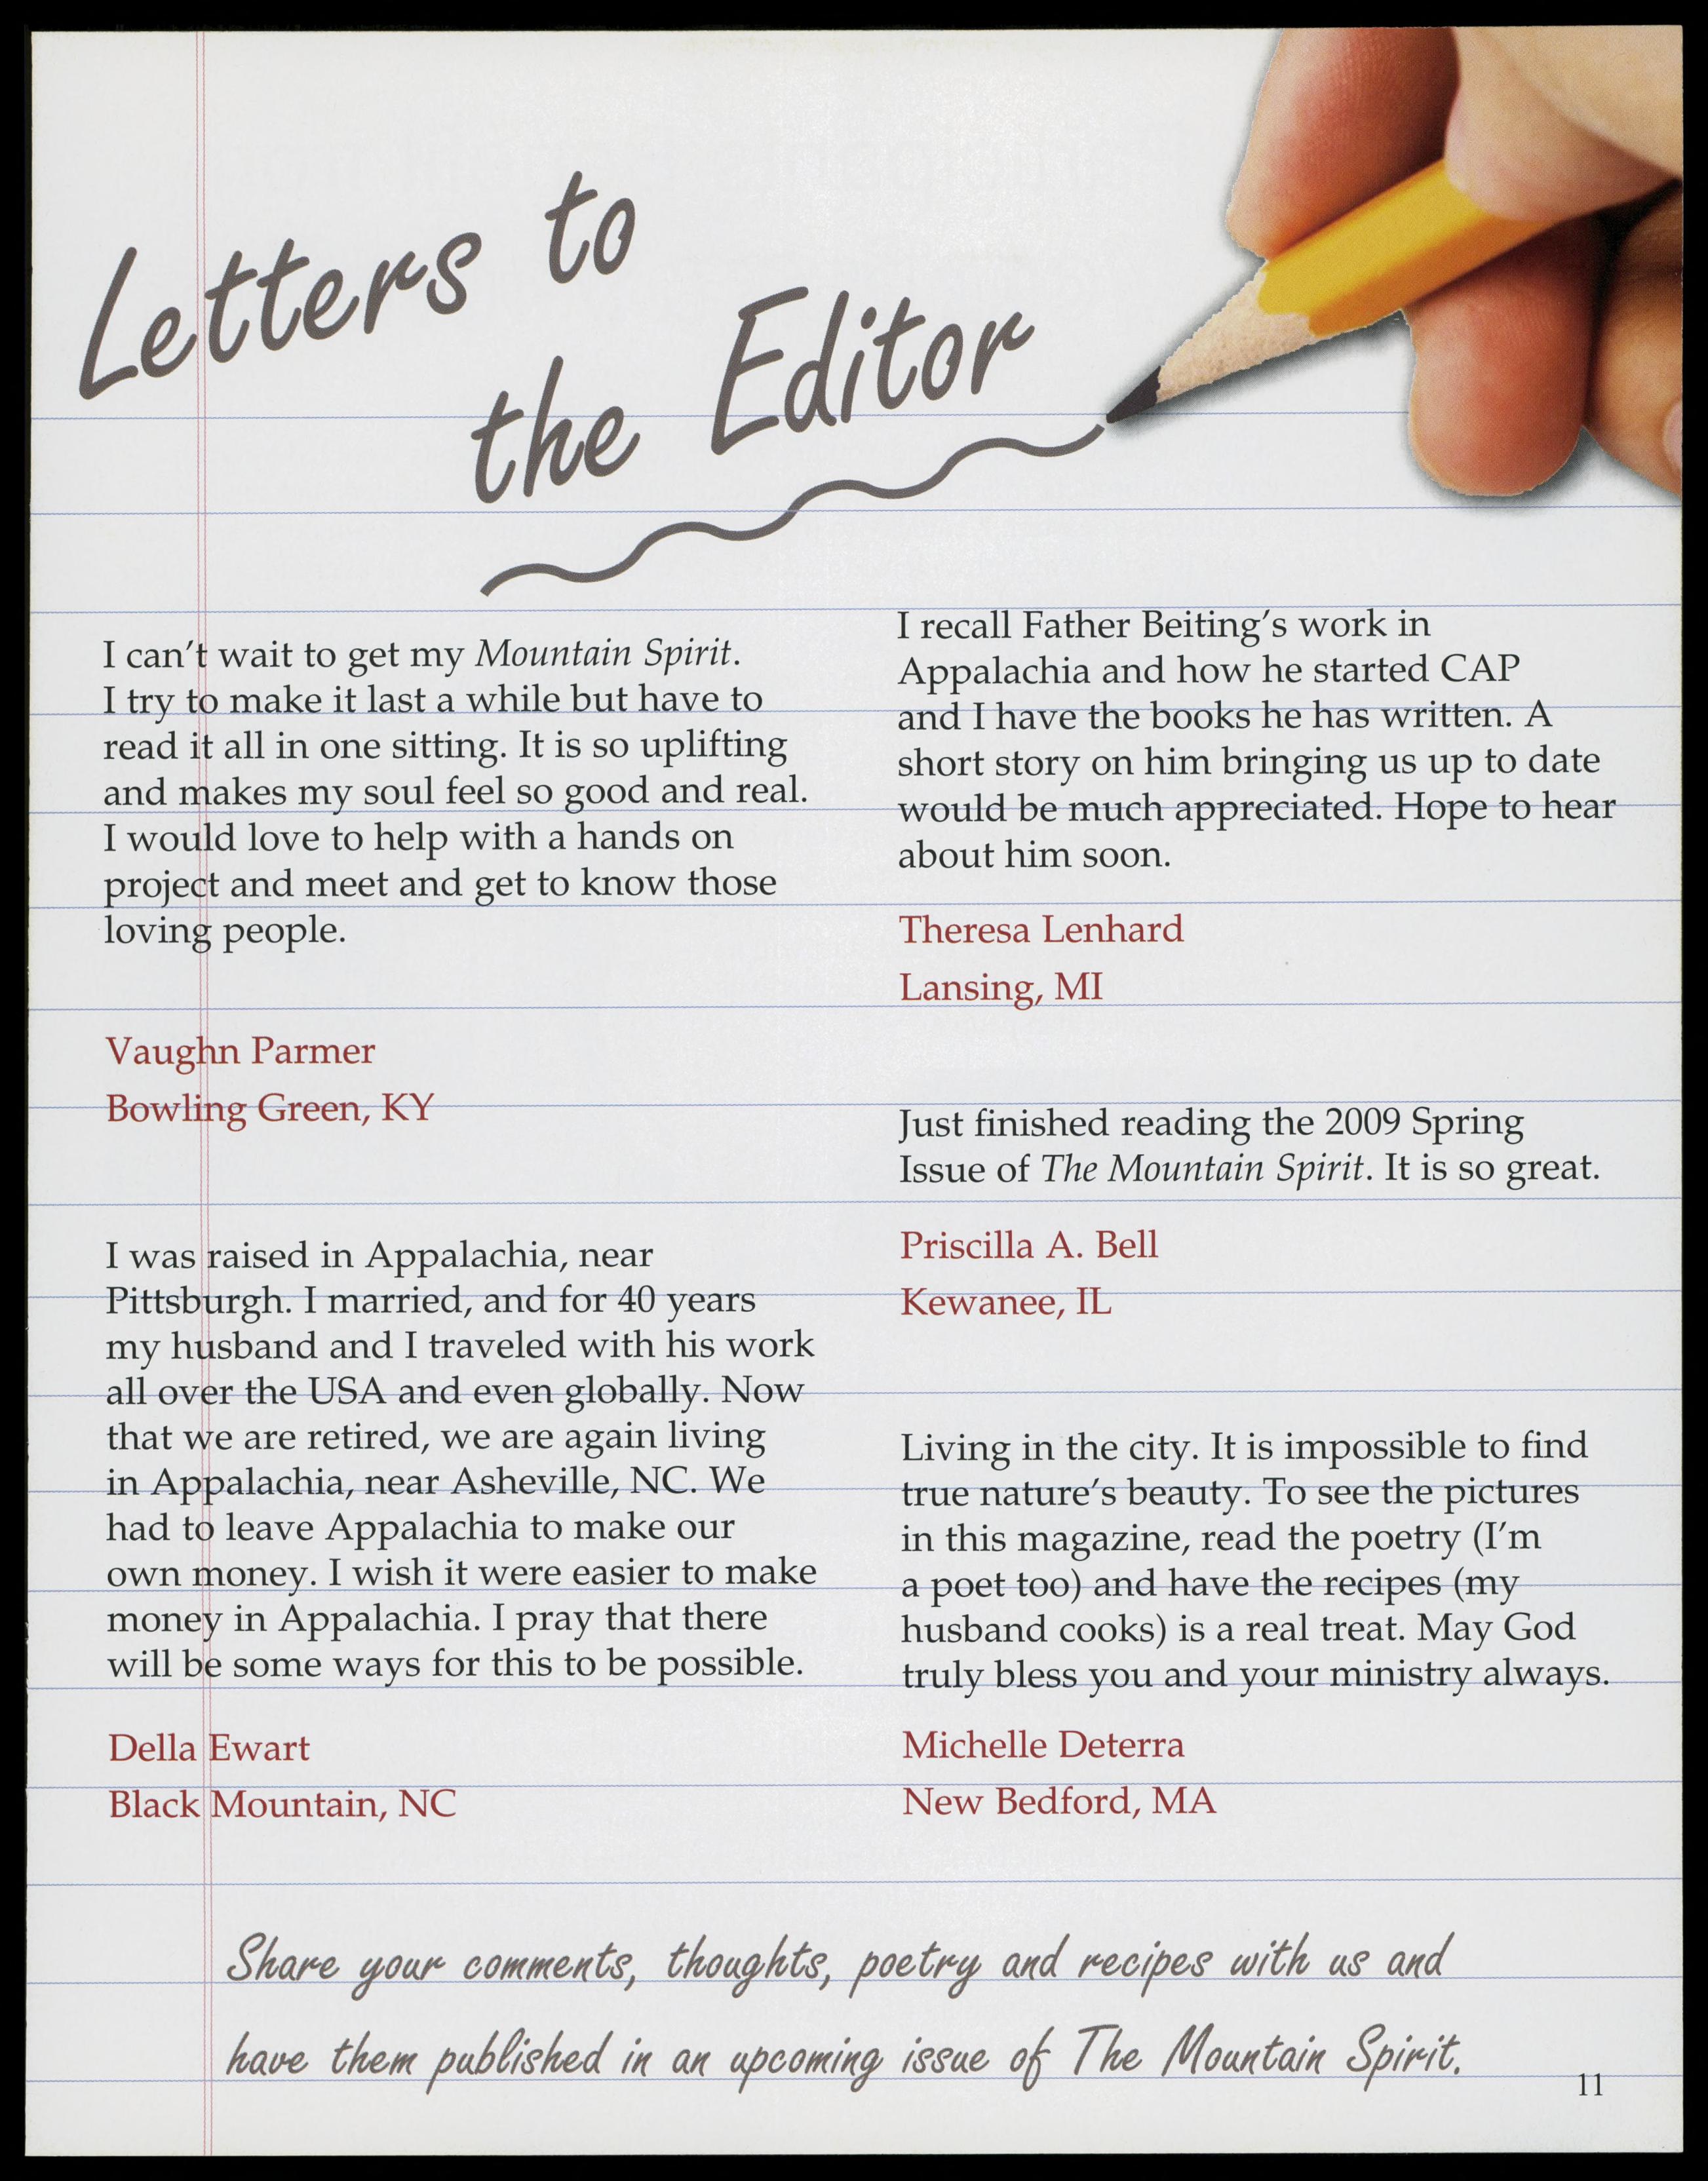 Letters to
the Editor
I can't wait to get my Mountain Spirit.
I try to make it last a while but have to
read it all in one sitting. It is so uplifting
and makes my soul feel so good and real.
I would love to help with a hands on
project and meet and get to know those
loving people.
Vaughn Parmer
Bowling Green, KY
I was raised in Appalachia, near
Pittsburgh. I married, and for 40 years
my husband and I traveled with his work
all over the USA and even globally. Now
that we are retired, we are again living
in Appalachia, near Asheville, NC. We
had to leave Appalachia to make our
own money. I wish it were easier to make
money in Appalachia. I pray that there
will be some ways for this to be possible.
Della Ewart
Black Mountain, NC
I recall Father Beiting's work in
Appalachia and how he started CAP
and I have the books he has written. A
short story on him bringing us up to date
would be much appreciated. Hope to hear
about him soon.
Theresa Lenhard
Lansing, MI
Just finished reading the 2009 Spring
Issue of The Mountain Spirit. It is so great.
Priscilla A. Bell
Kewanee, IL
Living in the city. It is impossible to find
true nature's beauty. To see the pictures
in this magazine, read the poetry (I'm
a poet too) and have the recipes (my
husband cooks) is a real treat. May God
truly bless you and your ministry always.
Michelle Deterra
New Bedford, MA
Share your comments, thoughts, poetry and recipes with us and
have them published in an upcoming issue of The Mountain Spirit.
11